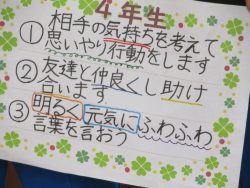 4年生
① 相手の気持ちを考えて
思いやり行動をします
② 友達と仲良くし助け
合います
③ 明るく元気にふわふわ
言葉を言おう